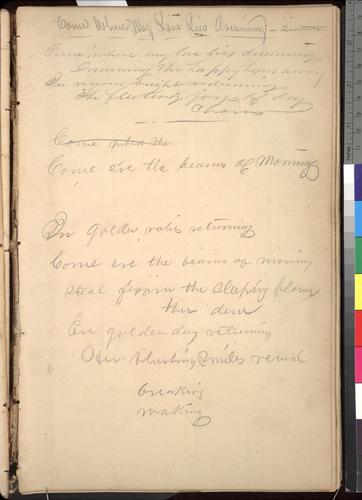 Come Where My Love Lies Dreaming – Quartette
Come where my love lies dreaming
Dreaming the happy hours away
In visions bright redeeming
The fleeting joys of day
Chorus
Come when the
Come e're the beams of Morning
In golden robes returning
Come ere the beams of morning
steal from the sleeping flower
ther dew
Ere golden day returning
Oer blushing smiles reveal
breaking
waking